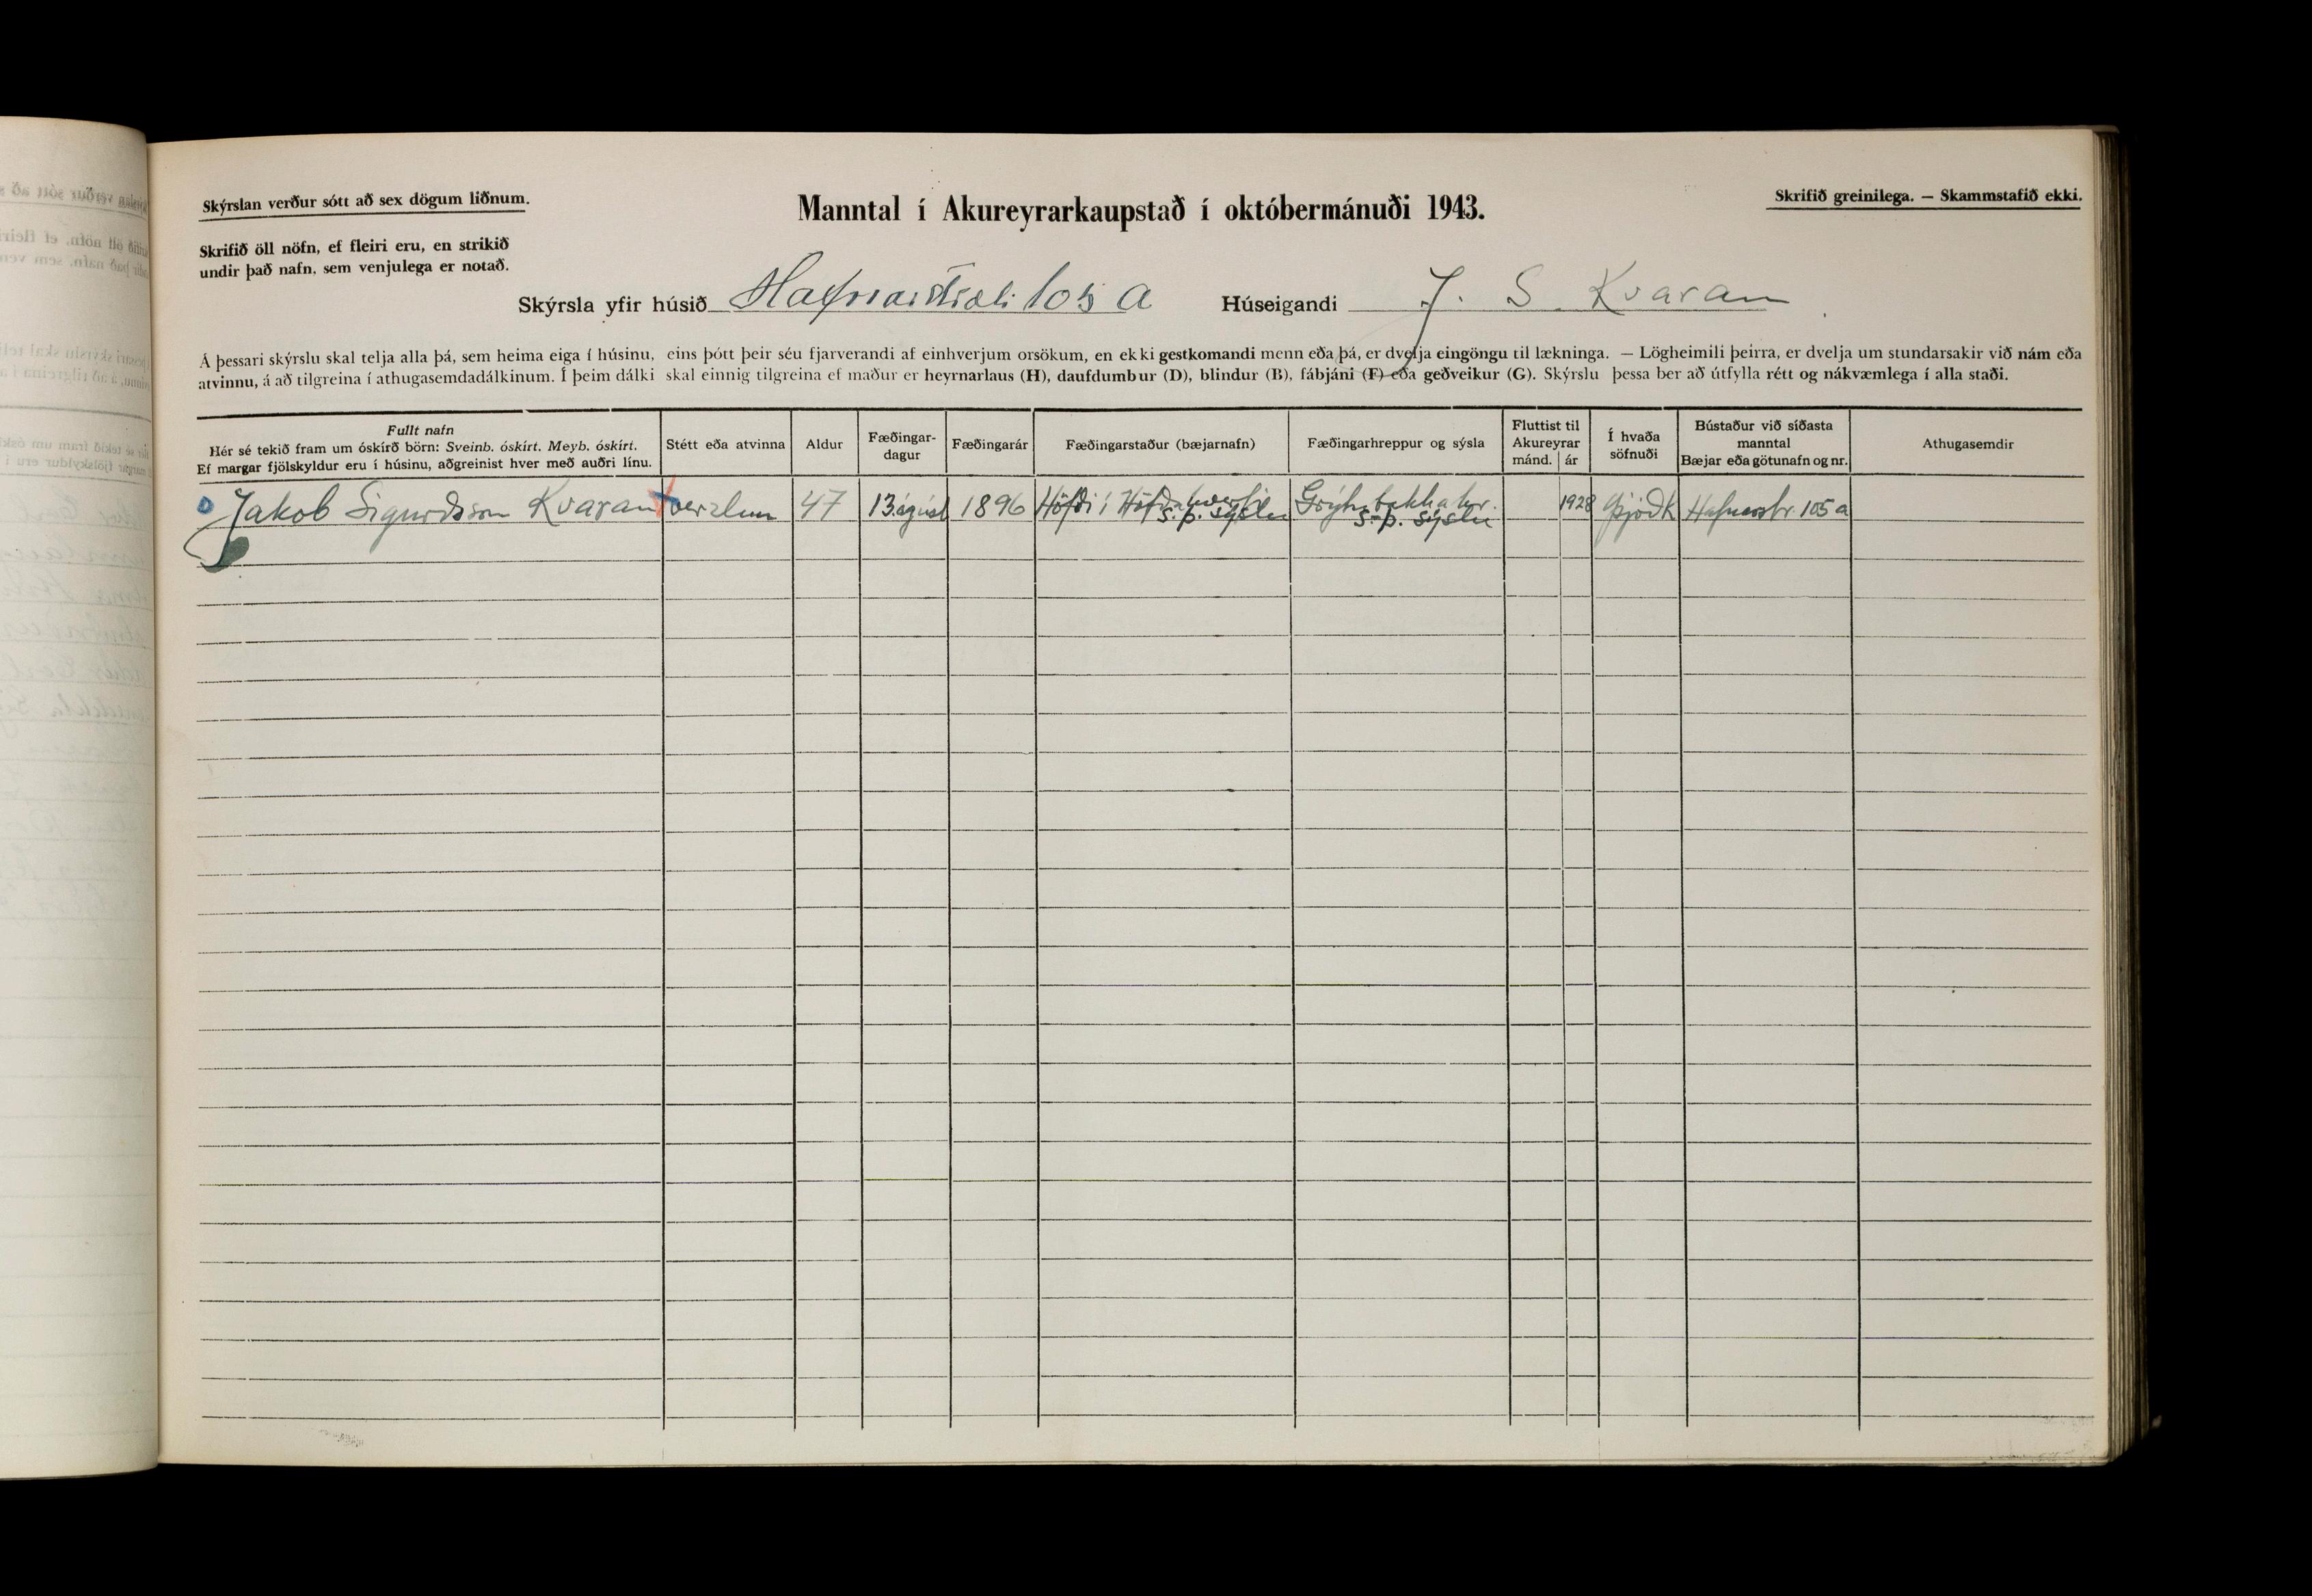 Skýrslan verður sótt að sex dögum liðnum.
Manntal í Akureyrarkaupstað í októbermánuði 1943.
Skrifið greinilega. — Skammstafið ekki.
Skrifið öll nöfn, ef fleiri eru, en strikið
undir það nafn, sem venjulega er notað.
Skýrsla yfir húsið Hafnarstræti 105 A Húseigandi J. S. Kvaran
Á þessari skýrslu skal telja alla þá, sem heima eiga í húsinu, eins þótt þeir séu fjarverandi af einhverjum orsökum, en ekki gestkomandi menn eða þá, er dvelja eingöngu til lækninga. — Lögheimili þeirra, er dvelja um stundarsakir við nám eða
atvinnu, á að tilgreina í athugasemdadálkinum. Í þeim dálki skal einnig tilgreina ef maður er heyrnarlaus (H), daufdumbur (D), blindur (B), fábjáni (F) eða geðveikur (G). Skýrslu þessa ber að útfylla rétt og nákvæmlega í alla staði.
Fullt nafn
Hér sé tekið fram um óskírð börn: Sveinb. óskírt. Meyb. óskírt.
Ef margar fjölskyldur eru í húsinu, aðgreinist hver með auðri línu.
Stétt eða atvinna
Aldur
Fæðingar-
dagur
Fæðingarár
Fæðingarstaður (bæjarnafn)
Fæðingarhreppur og sýsla
Fluttist til
Akureyrar
mánd. ár
Í hvaða
söfnuði
Bústaður við síðasta
manntal
Bæjar eða götunafn og nr.
Athugasemdir
Jakob Sigurðsson Kvaran verzlun 47 13. ágúst 1896 Höfði í Höfðahverfi Grýtubakkahr. 1928 Þjóðk Hafnarstr. 105 a
S. Þ. sýslu S-Þ. sýslu